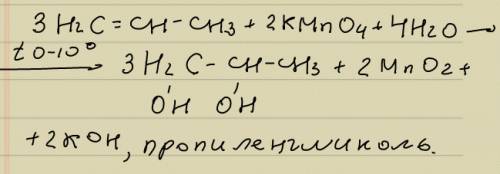 3 H2C = CH - CH3 + 2KMnO4 + 4H2O →
t 0-10° 3 H2C - CH - CH3 + 2MnO2 +
OH OH
+ 2KOH, пропиленгликоль.